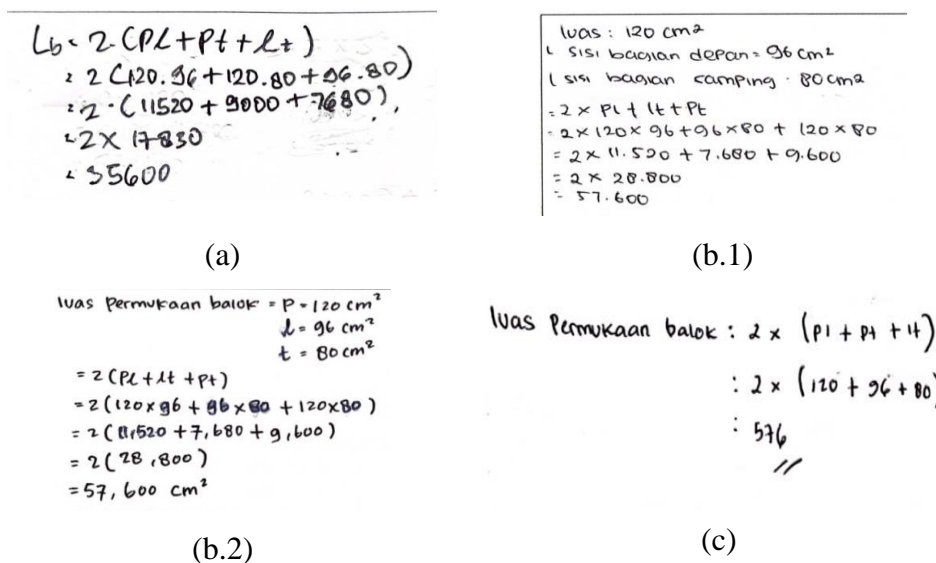 Lb = 2. (Pl+Pt+lt)
= 2 (120.96+120.80+96.80)
= 2. (11520 + 9000 + 7680),
= 2 x 17830
= 35600
(a)
luas : 120 cm2
L sisi bagian depan = 96 cm2
L sisi bagian samping . 80 cm2
= 2 x Pl + lt + Pt
= 2 x 120 x 96 + 96 x 80 + 120 x 80
= 2 x 11.520 + 7.680 + 9.600
= 2 x 28.800
= 57.600
(b.1)
luas Permukaan balok = P = 120 cm²
l = 96 cm²
t = 80 cm²
= 2 (Pl + lt + pt)
= 2 (120 x 96 + 96 x 80 + 120 x 80)
= 2 (11,520 + 7,680 + 9,600)
= 2 (28,800)
= 57,600 cm²
(b.2)
luas Permukaan balok : 2 x (pl + pt + lt)
: 2 x (120 + 96 + 80)
: 576
(c)